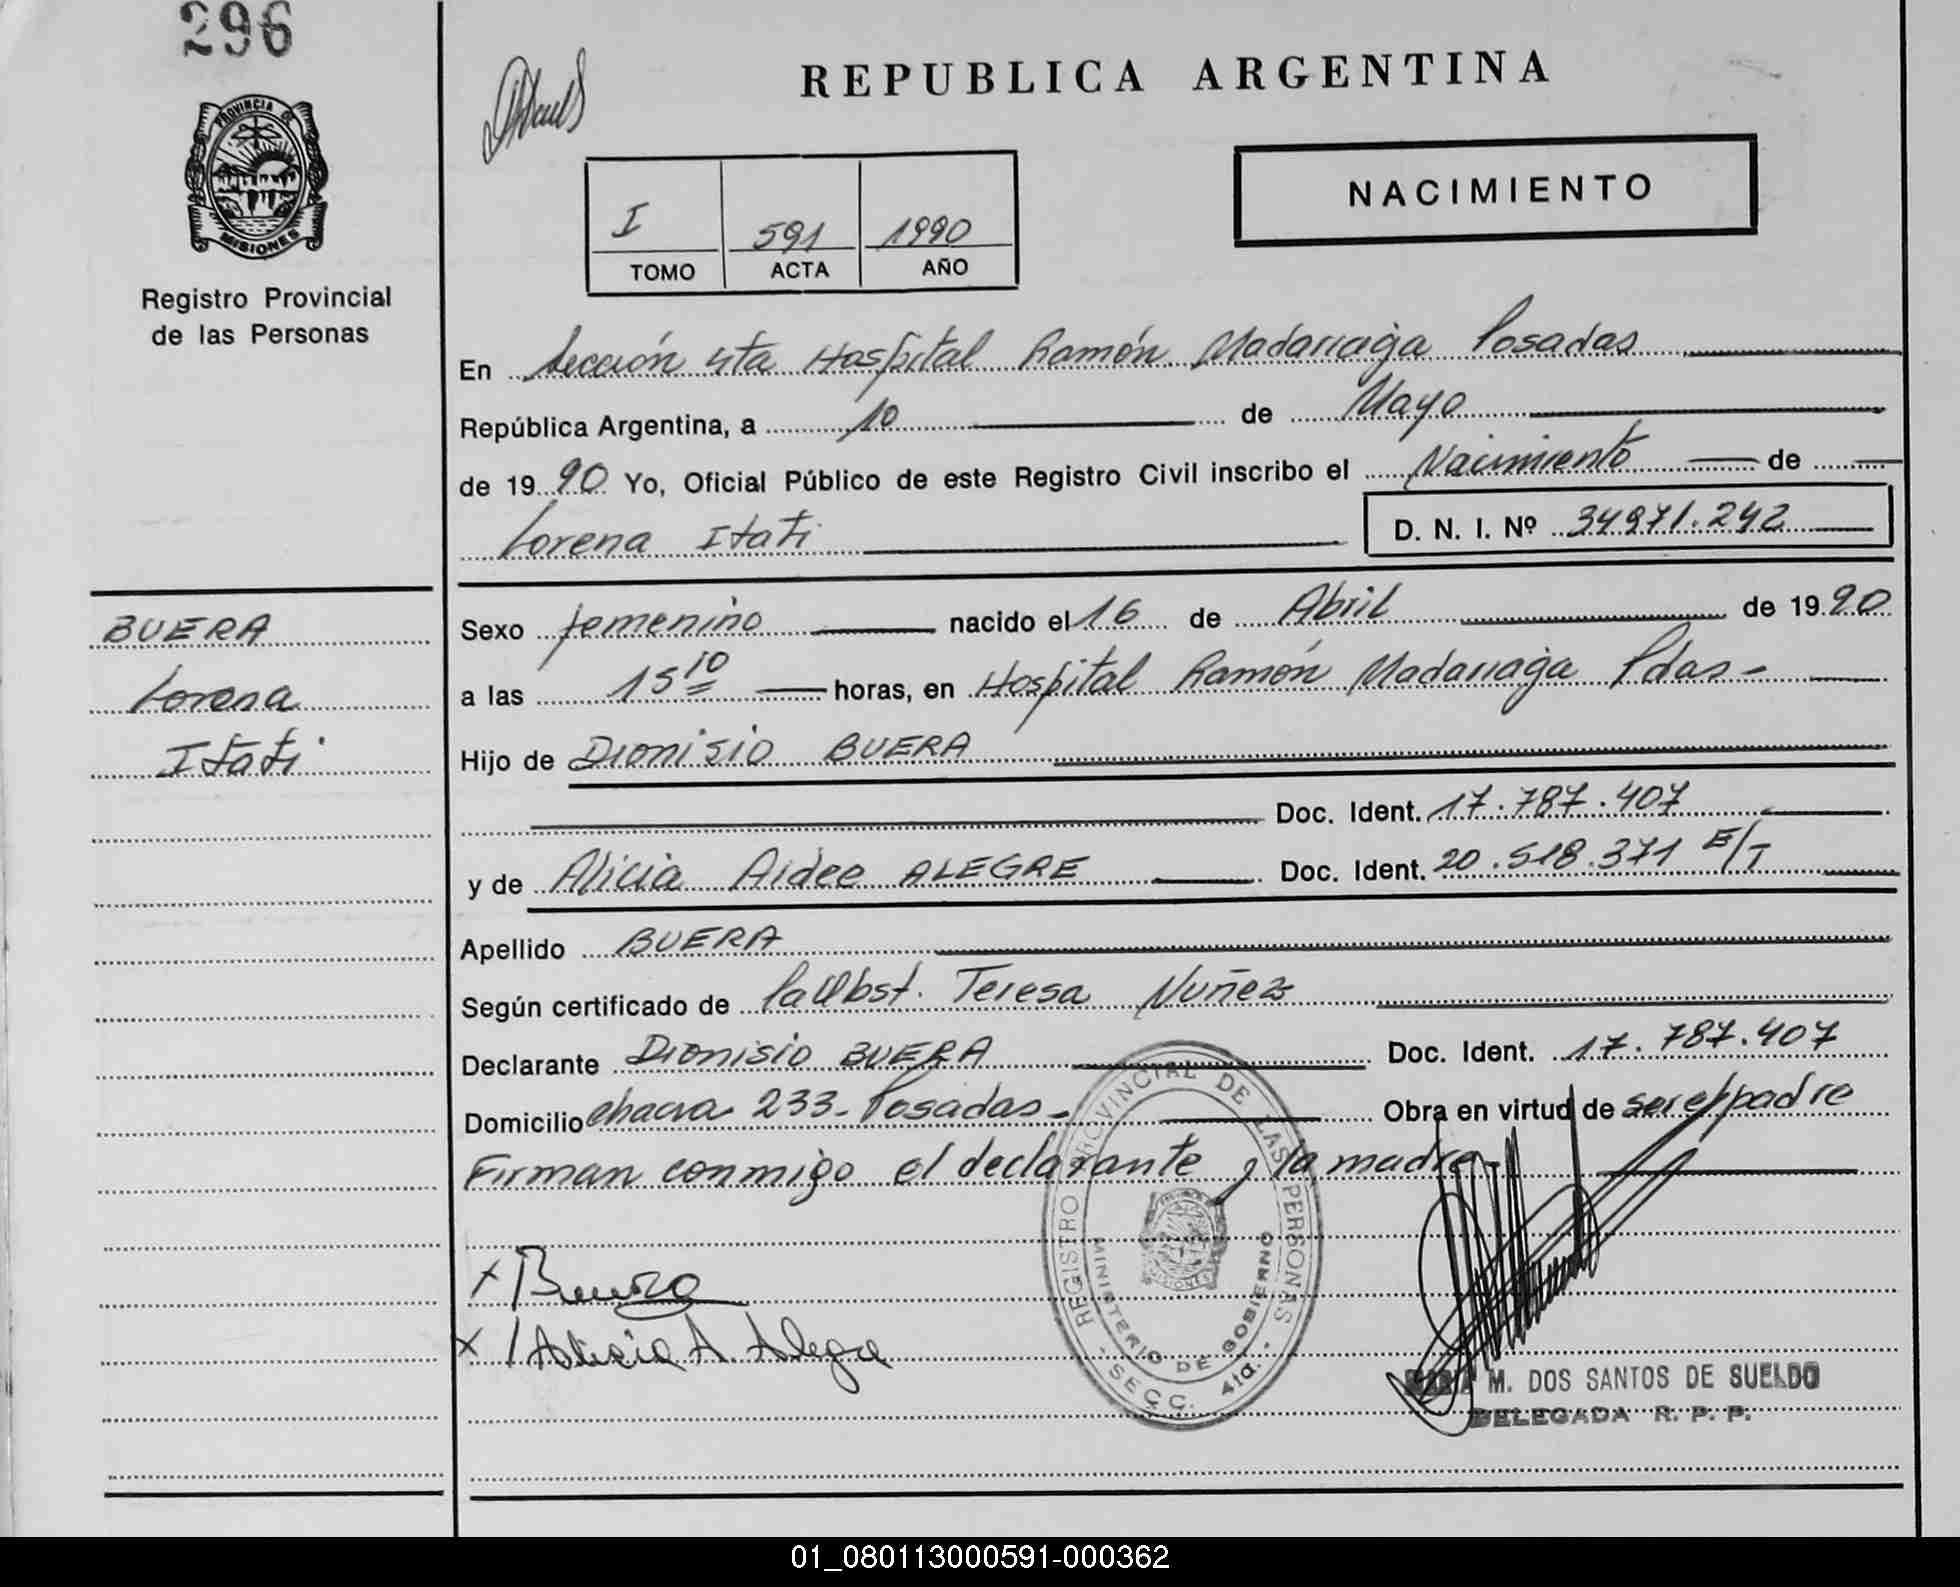 296
REPUBLICA ARGENTINA
PROVINCIA DE
MISIONES
Registro Provincial
de las Personas
I 591 1990
TOMO ACTA AÑO
NACIMIENTO
En Sección 4ta Hospital Ramón Madariaga Posadas
República Argentina, a 10 de Mayo
de 1990 Yo, Oficial Público de este Registro Civil inscribo el Nacimiento de
Lorena Itati D. N. I. Nº 34971.242
BUERA
Lorena
Itati
Sexo femenino nacido el 16 de Abril de 1990
a las 15 10 horas, en Hospital Ramón Madariaga Pdas-
Hijo de Dionisio BUERA
Doc. Ident. 17.787.407
y de Alicia Aidee ALEGRE Doc. Ident. 20.518.371 E/T
Apellido BUERA
Según certificado de la Obst. Teresa Nuñez
Declarante Dionisio BUERA Doc. Ident. 17.787.407
Domicilio chacra 233- Posadas- Obra en virtud de ser el padre
Firman conmigo el declarante y la madre-
x Buera
x Alicia A. Alegre
REGISTRO PROVINCIAL DE LAS PERSONAS
MINISTERIO DE GOBIERNO
- SECC. 4ta. -
MISIONES
M. DOS SANTOS DE SUELDO
DELEGADA R. P. P.
01_080113000591-000362